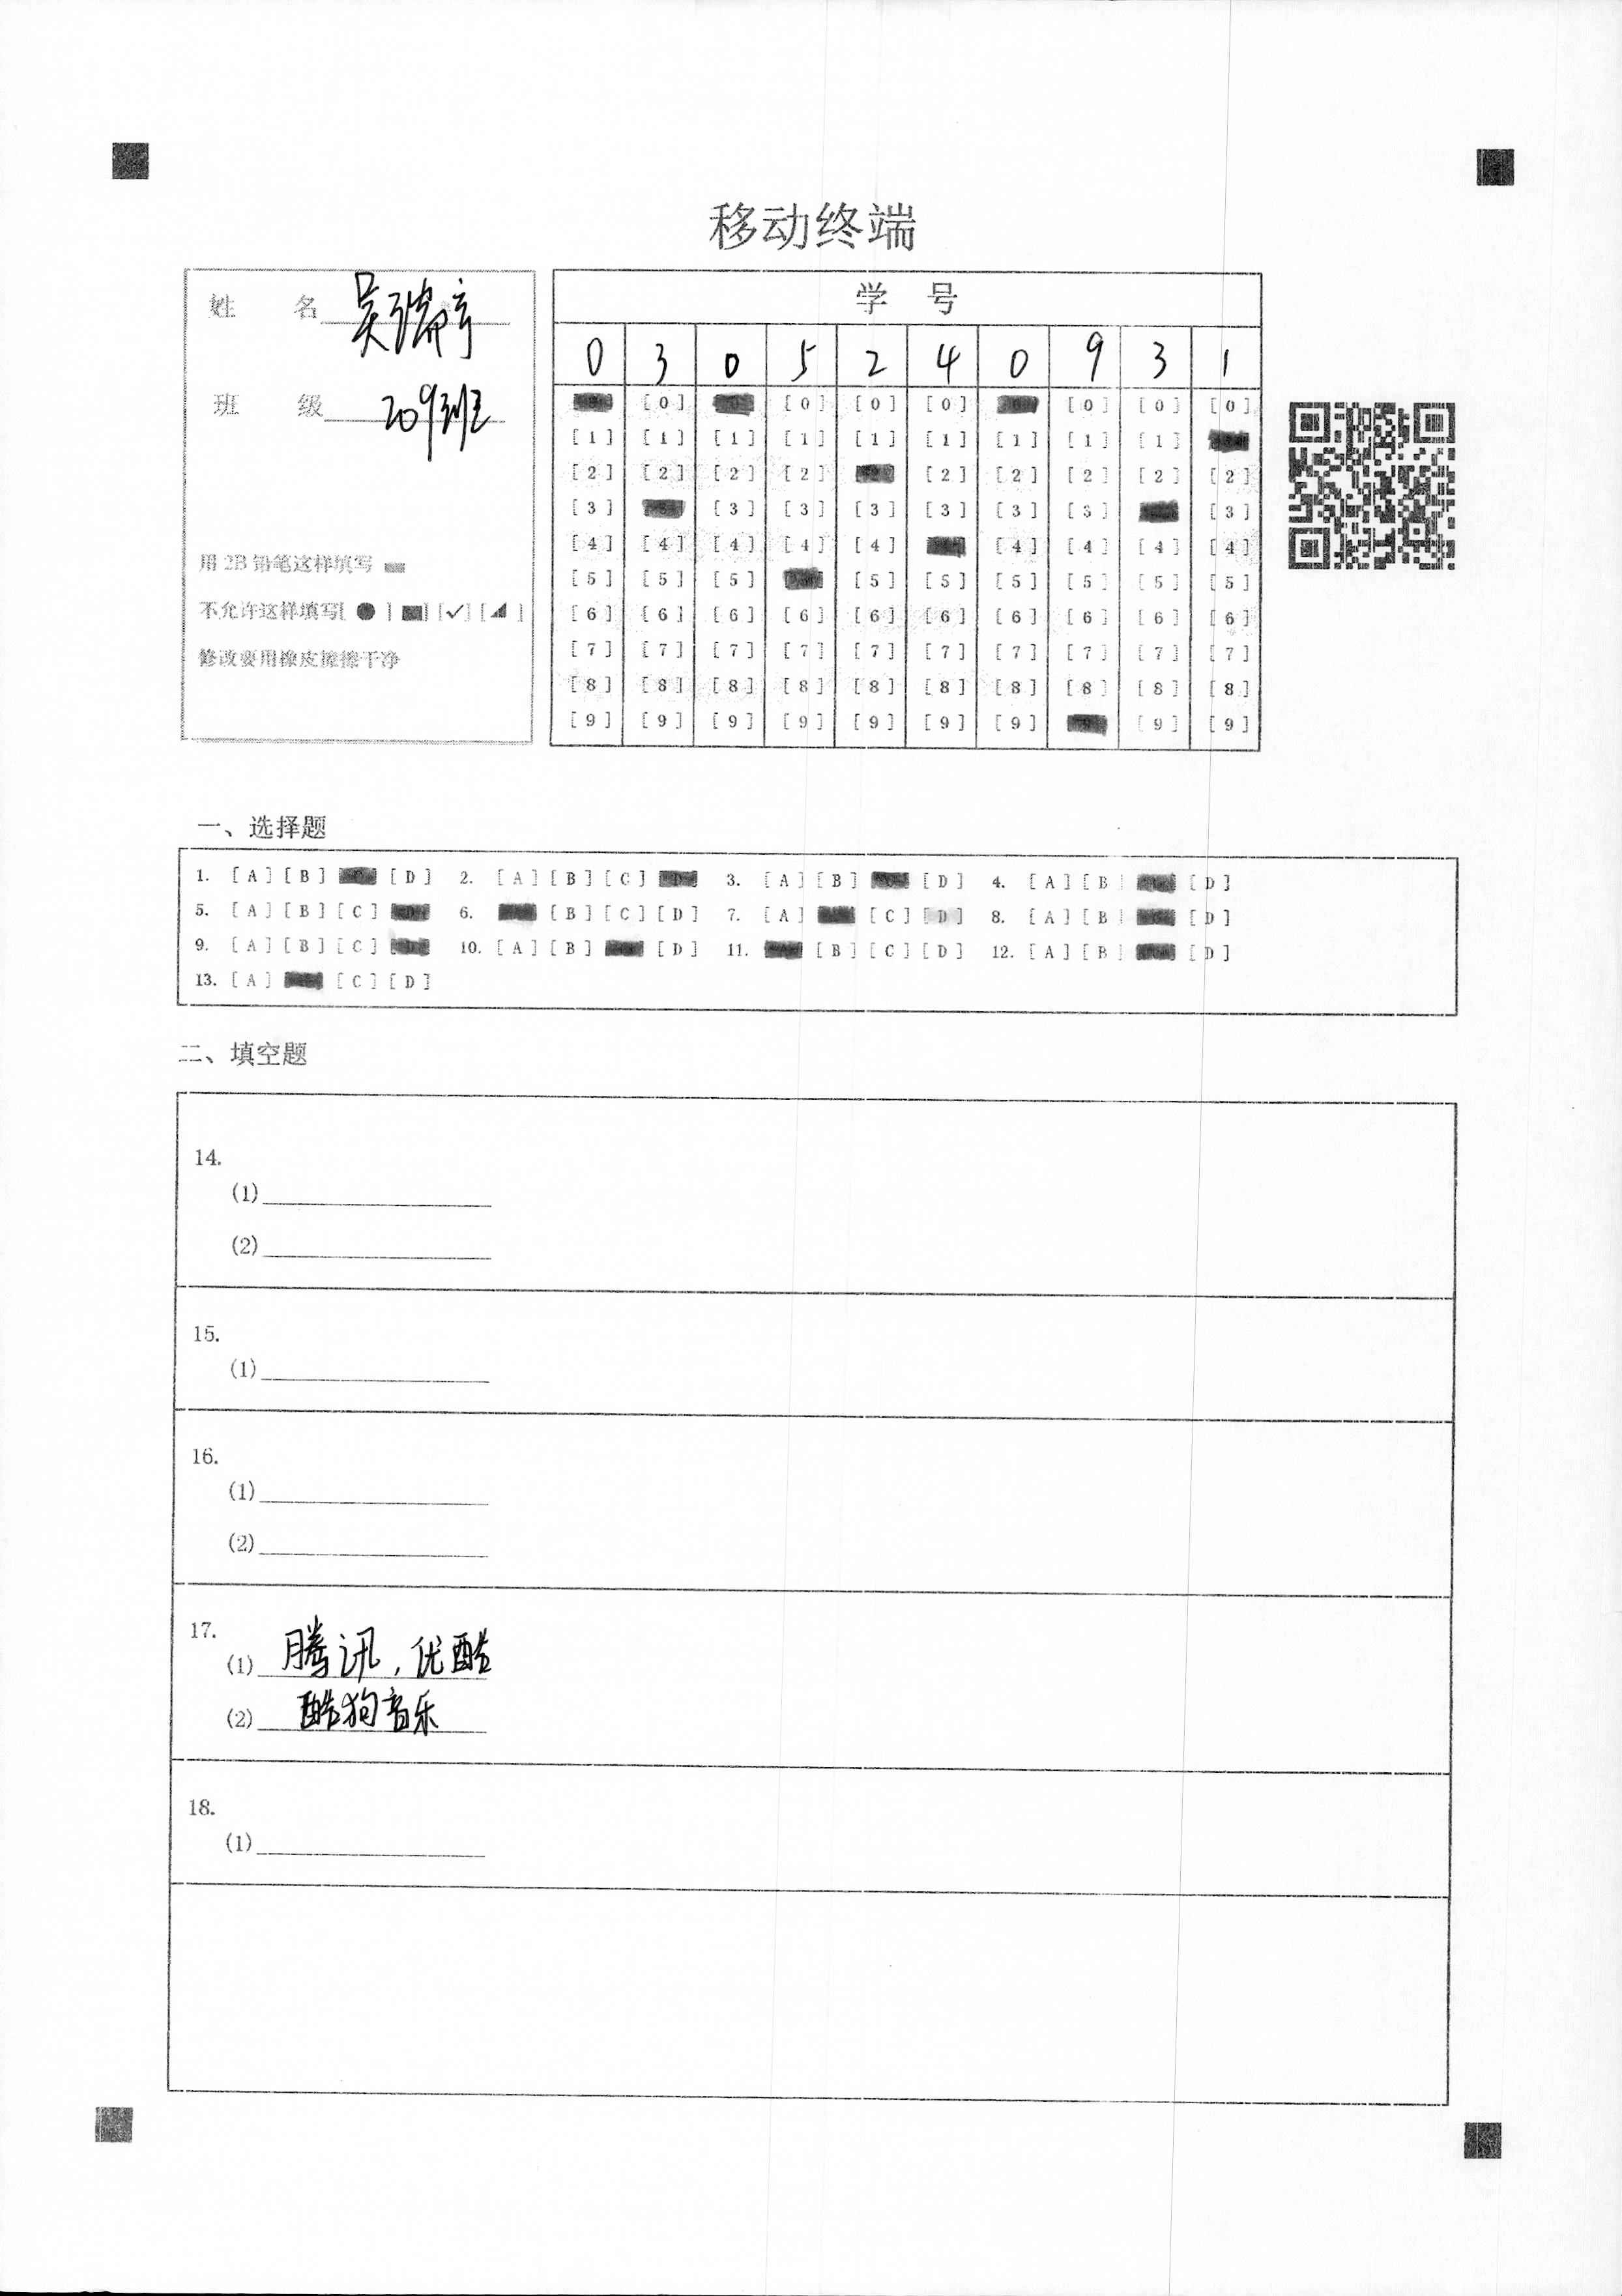 移动终端
姓 名 吴瑞亨
班 级 209班
用 2B 铅笔这样填写
不允许这样填写[ ● ] [■] [✓] [◢ ]
修改要用橡皮擦擦干净
学 号
0 3 0 5 2 4 0 9 3 1
[0] [0] [0] [0] [0] [0] [0]
[1] [1] [1] [1] [1] [1] [1] [1] [1]
[2] [2] [2] [2] [2] [2] [2] [2] [2]
[3] [3] [3] [3] [3] [3] [3] [3]
[4] [4] [4] [4] [4] [4] [4] [4] [4]
[5] [5] [5] [5] [5] [5] [5] [5] [5]
[6] [6] [6] [6] [6] [6] [6] [6] [6] [6]
[7] [7] [7] [7] [7] [7] [7] [7] [7] [7]
[8] [8] [8] [8] [8] [8] [8] [8] [8] [8]
[9] [9] [9] [9] [9] [9] [9] [9] [9]
一、选择题
1. [A] [B] [D] 2. [A] [B] [C] 3. [A] [B] [D] 4. [A] [B] [D]
5. [A] [B] [C] 6. [B] [C] [D] 7. [A] [C] [D] 8. [A] [B] [D]
9. [A] [B] [C] 10. [A] [B] [D] 11. [B] [C] [D] 12. [A] [B] [D]
13. [A] [C] [D]
二、填空题
14.
(1)
(2)
15.
(1)
16.
(1)
(2)
17.
(1) 腾讯,优酷
(2) 酷狗音乐
18.
(1)